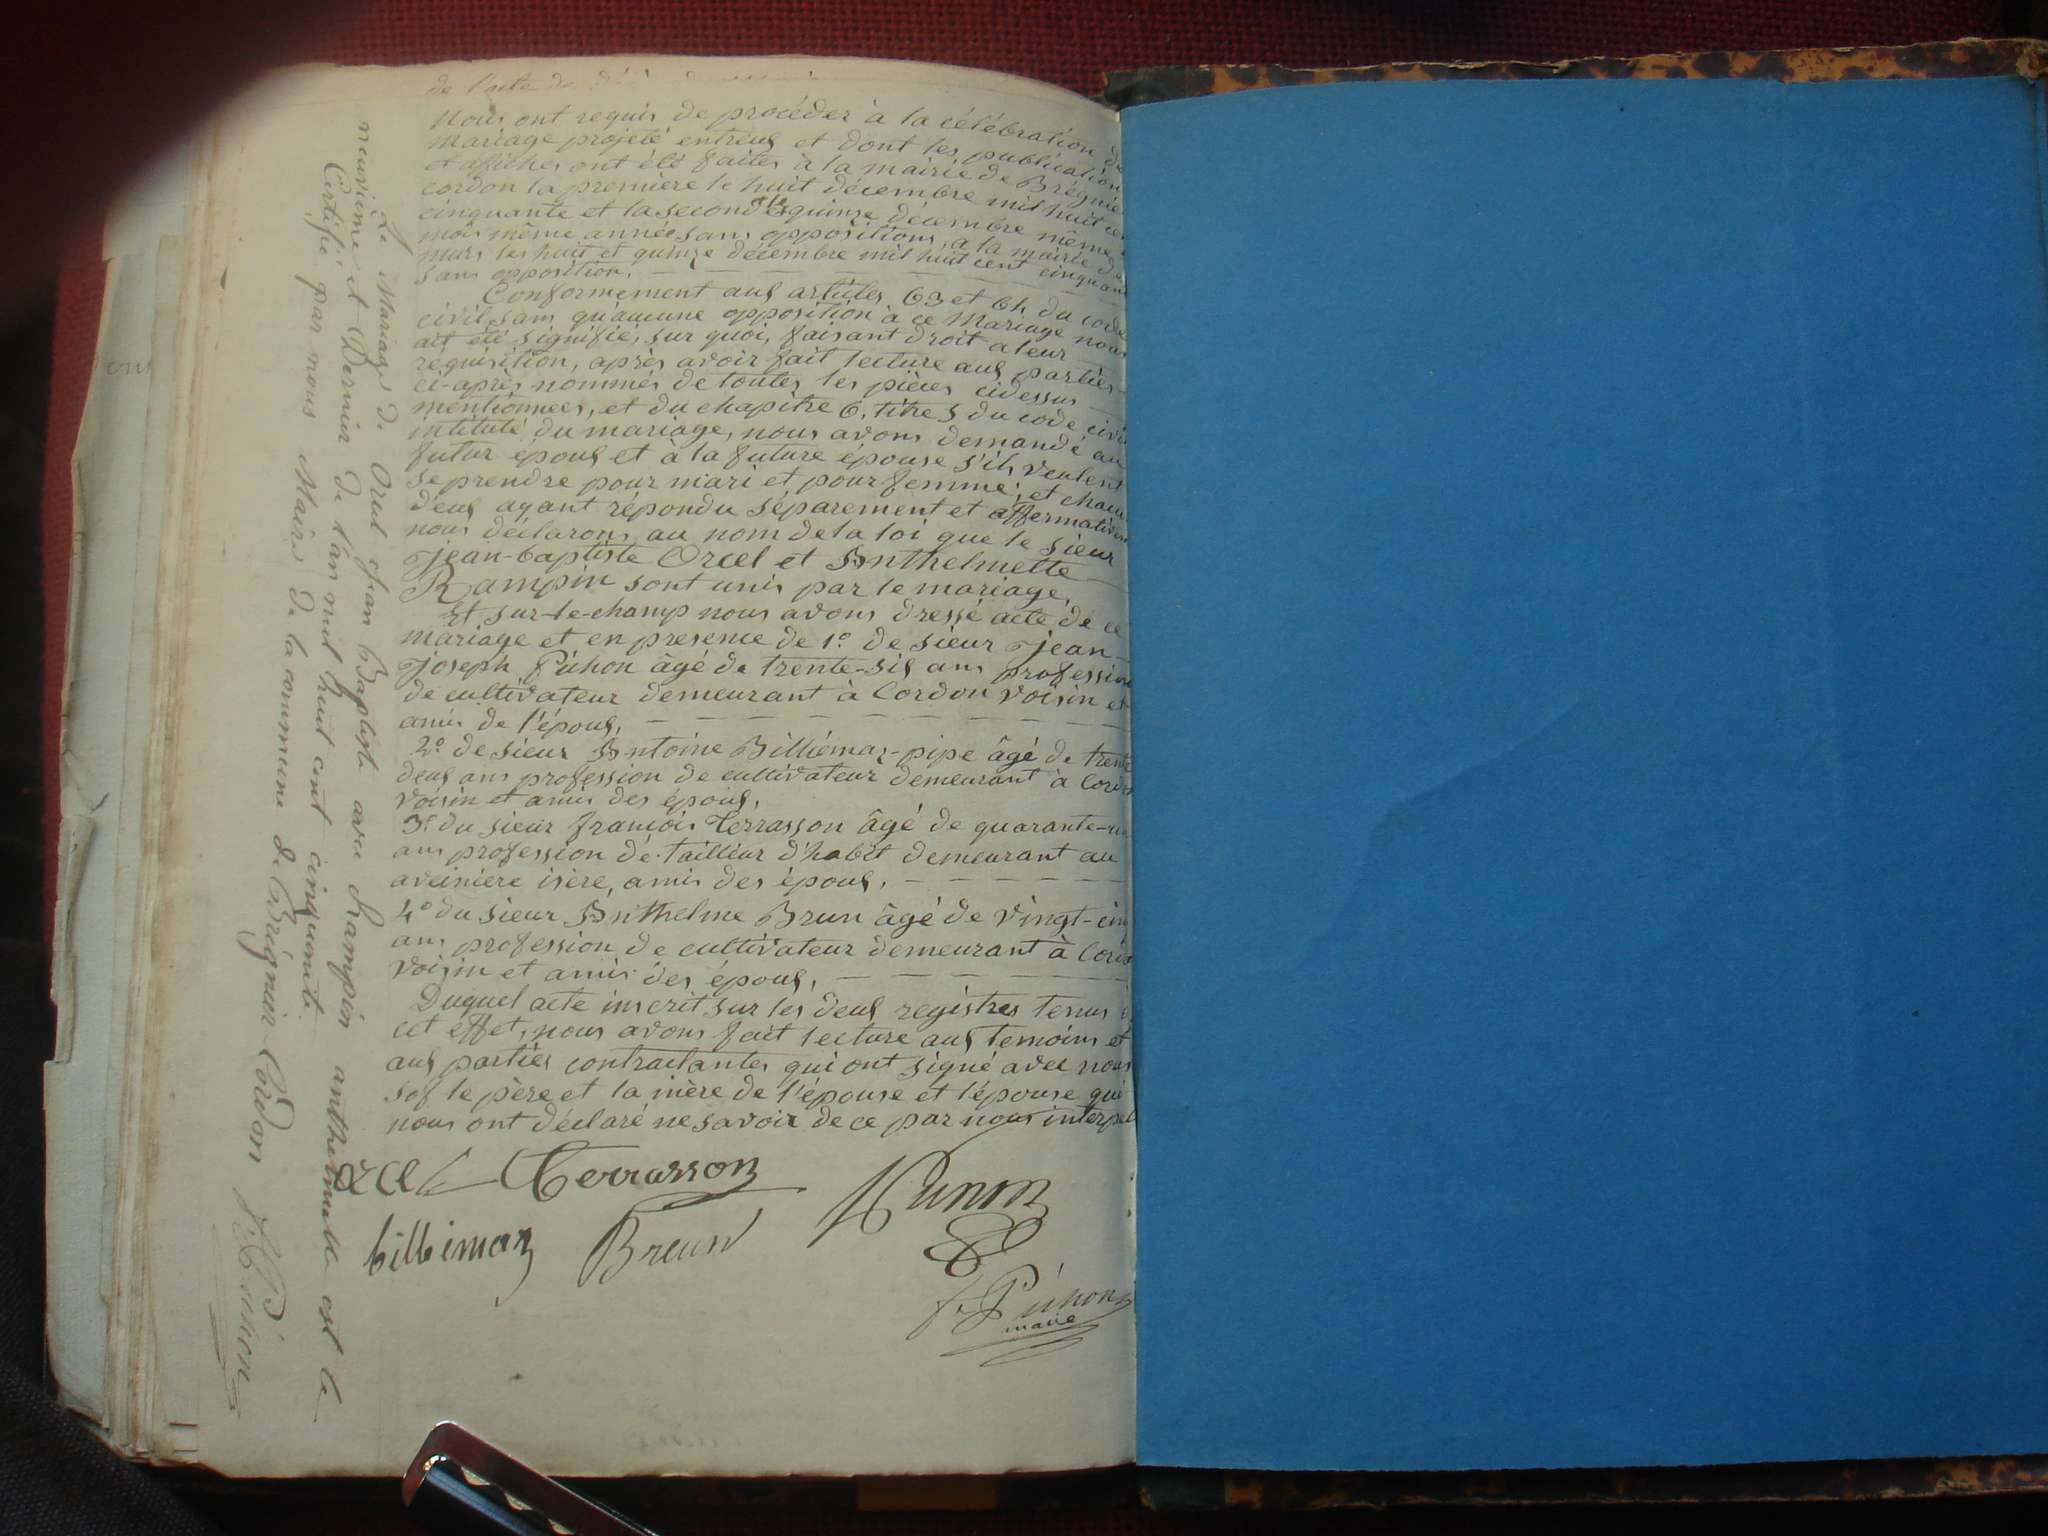 de l'acte de
Nous ont requis de procéder à la célébration du
mariage projeté entreux et dont les publication
et affiches ont été faites à la mairie de Brégnier
cordon la première le huit décembre mil huit ce
cinquante et la seconde le quinze décembre même
mois même année sans oppositions, a la mairie de
murs les huit et quinze décembre mil huit cent cinquan
sans opposition.
Conformement aux articles 63 et 64 du code
civil, sans qu'aucune opposition à ce Mariage nous
ait été signifié, sur quoi, faisant droit a leur
réquisition, après avoir fait lecture aux parties
ci-après nommés de toutes les pièces cidessus
mentionnees, et du chapitre 6, titre 5 du code civi
intitulé du mariage, nous avons demandé au
futur époux et à la future épouse s'ils veulent
se prendre pour mari et pour femme; et chacu
d'eux ayant répondu séparement et affermativem
nous déclarons au nom de la loi que le sieur
jean-baptiste Orcel et Anthelmette
Rampin sont unis par le mariage,
Et sur-le-champ nous avons dressé acte de ce
mariage et en presence de 1º. de sieur jean
joseph Pichon âgé de trente-six ans profession
de cultivateur demeurant à Cordon voisin et
amis de l'époux,
2º. de sieur Antoine Billiémaz-pipe âgé de trente
deux ans profession de cultivateur demeurant à Cordon
voisin et amis des époux,
3º. du sieur françois Terrasson âgé de quarante-un
ans profession de tailleur d'habit demeurant au
aveinière isère, amis des époux,
4º du sieur Anthelme Brun âgé de vingt-cinq
ans profession de cultivateur demeurant à Cordo
voisin et amis des époux,
Duquel acte inscrit sur les deux registres tenus à
cet effet, nous avons fait lecture aux temoins et
aux parties contractantes qui ont signé avec nous
sof le père et la mère de l'épouse et l'épouse qui
nous ont déclaré ne savoir de ce par nous interpel
orcel Terrasson
billiemaz Breun
maire
Le Mariage de Orcel jean Baptiste avec Rampin anthelmette est le
neuvième et Dernier de l'an mil huit cent cinquante.
Certifié par nous Maire de la commune de Brégnier-Cordon